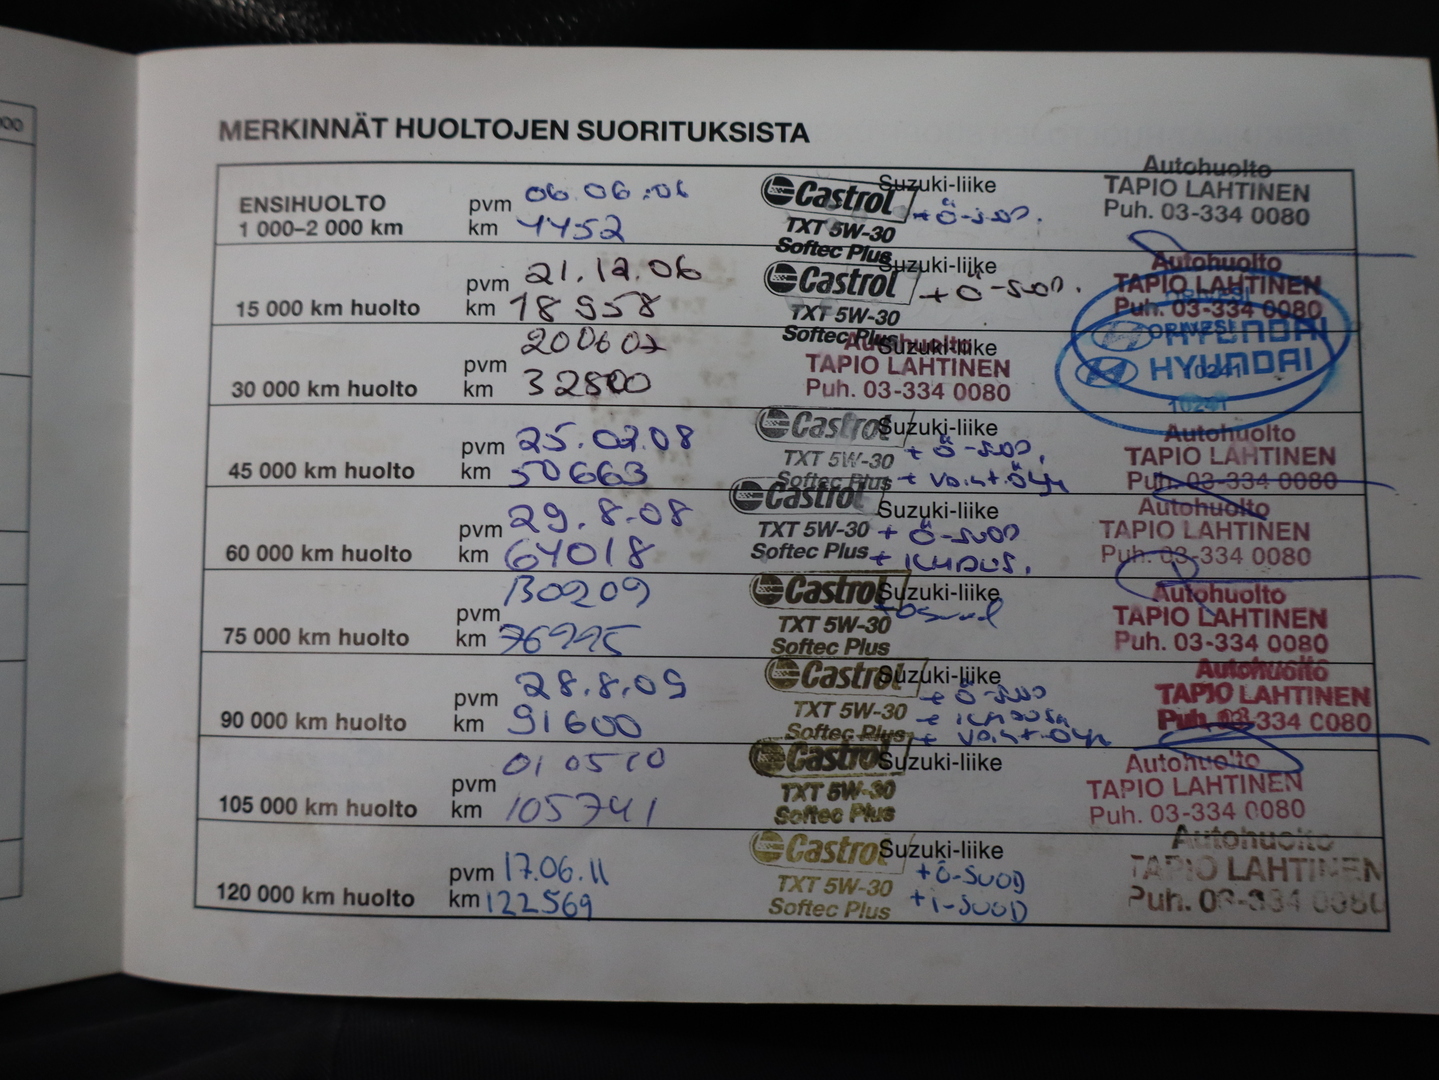 000
MERKINNÄT HUOLTOJEN SUORITUKSISTA
ENSIHUOLTO
1 000–2 000 km
pvm 06.06.06
km 4452
Castrol
TXT 5W-30
Softec Plus
Suzuki-liike
+ Ö-suod.
Autohuolto
TAPIO LAHTINEN
Puh. 03-334 0080
15 000 km huolto
pvm 21.12.06
km 18958
Castrol
TXT 5W-30
Softec Plus
Suzuki-liike
+ Ö-suod.
Autohuolto
TAPIO LAHTINEN
Puh. 03-334 0080
30 000 km huolto
pvm 200607
km 32800
Autohuolto
TAPIO LAHTINEN
Puh. 03-334 0080
Suzuki-liike
ORIVESI
HYUNDAI
HYUNDAI
0241
10241
45 000 km huolto
pvm 25.02.08
km 50663
Castrol
TXT 5W-30
Softec Plus
Suzuki-liike
+ Ö-suod.
+ Vaiht.Öljy
Autohuolto
TAPIO LAHTINEN
Puh. 03-334 0080
60 000 km huolto
pvm 29.8.08
km 64018
Castrol
TXT 5W-30
Softec Plus
Suzuki-liike
+ Ö-suod
Autohuolto
TAPIO LAHTINEN
Puh. 03-334 0080
75 000 km huolto
pvm 130209
km 76995
Castrol
TXT 5W-30
Softec Plus
Suzuki-liike
Autohuolto
TAPIO LAHTINEN
Puh. 03-334 0080
90 000 km huolto
pvm 28.8.09
km 91600
Castrol
TXT 5W-30
Softec Plus
Suzuki-liike
+ Ö-suod
+ Vaiht.Öljy
Autohuolto
TAPIO LAHTINEN
Puh. 03-334 0080
105 000 km huolto
pvm 010510
km 105741
Castrol
TXT 5W-30
Softec Plus
Suzuki-liike
Autohuolto
TAPIO LAHTINEN
Puh. 03-334 0080
120 000 km huolto
pvm 17.06.11
km 122569
Castrol
TXT 5W-30
Softec Plus
Suzuki-liike
+Ö-SUOD
+I-SUOD
Autohuolto
TAPIO LAHTINEN
Puh. 03-334 0080